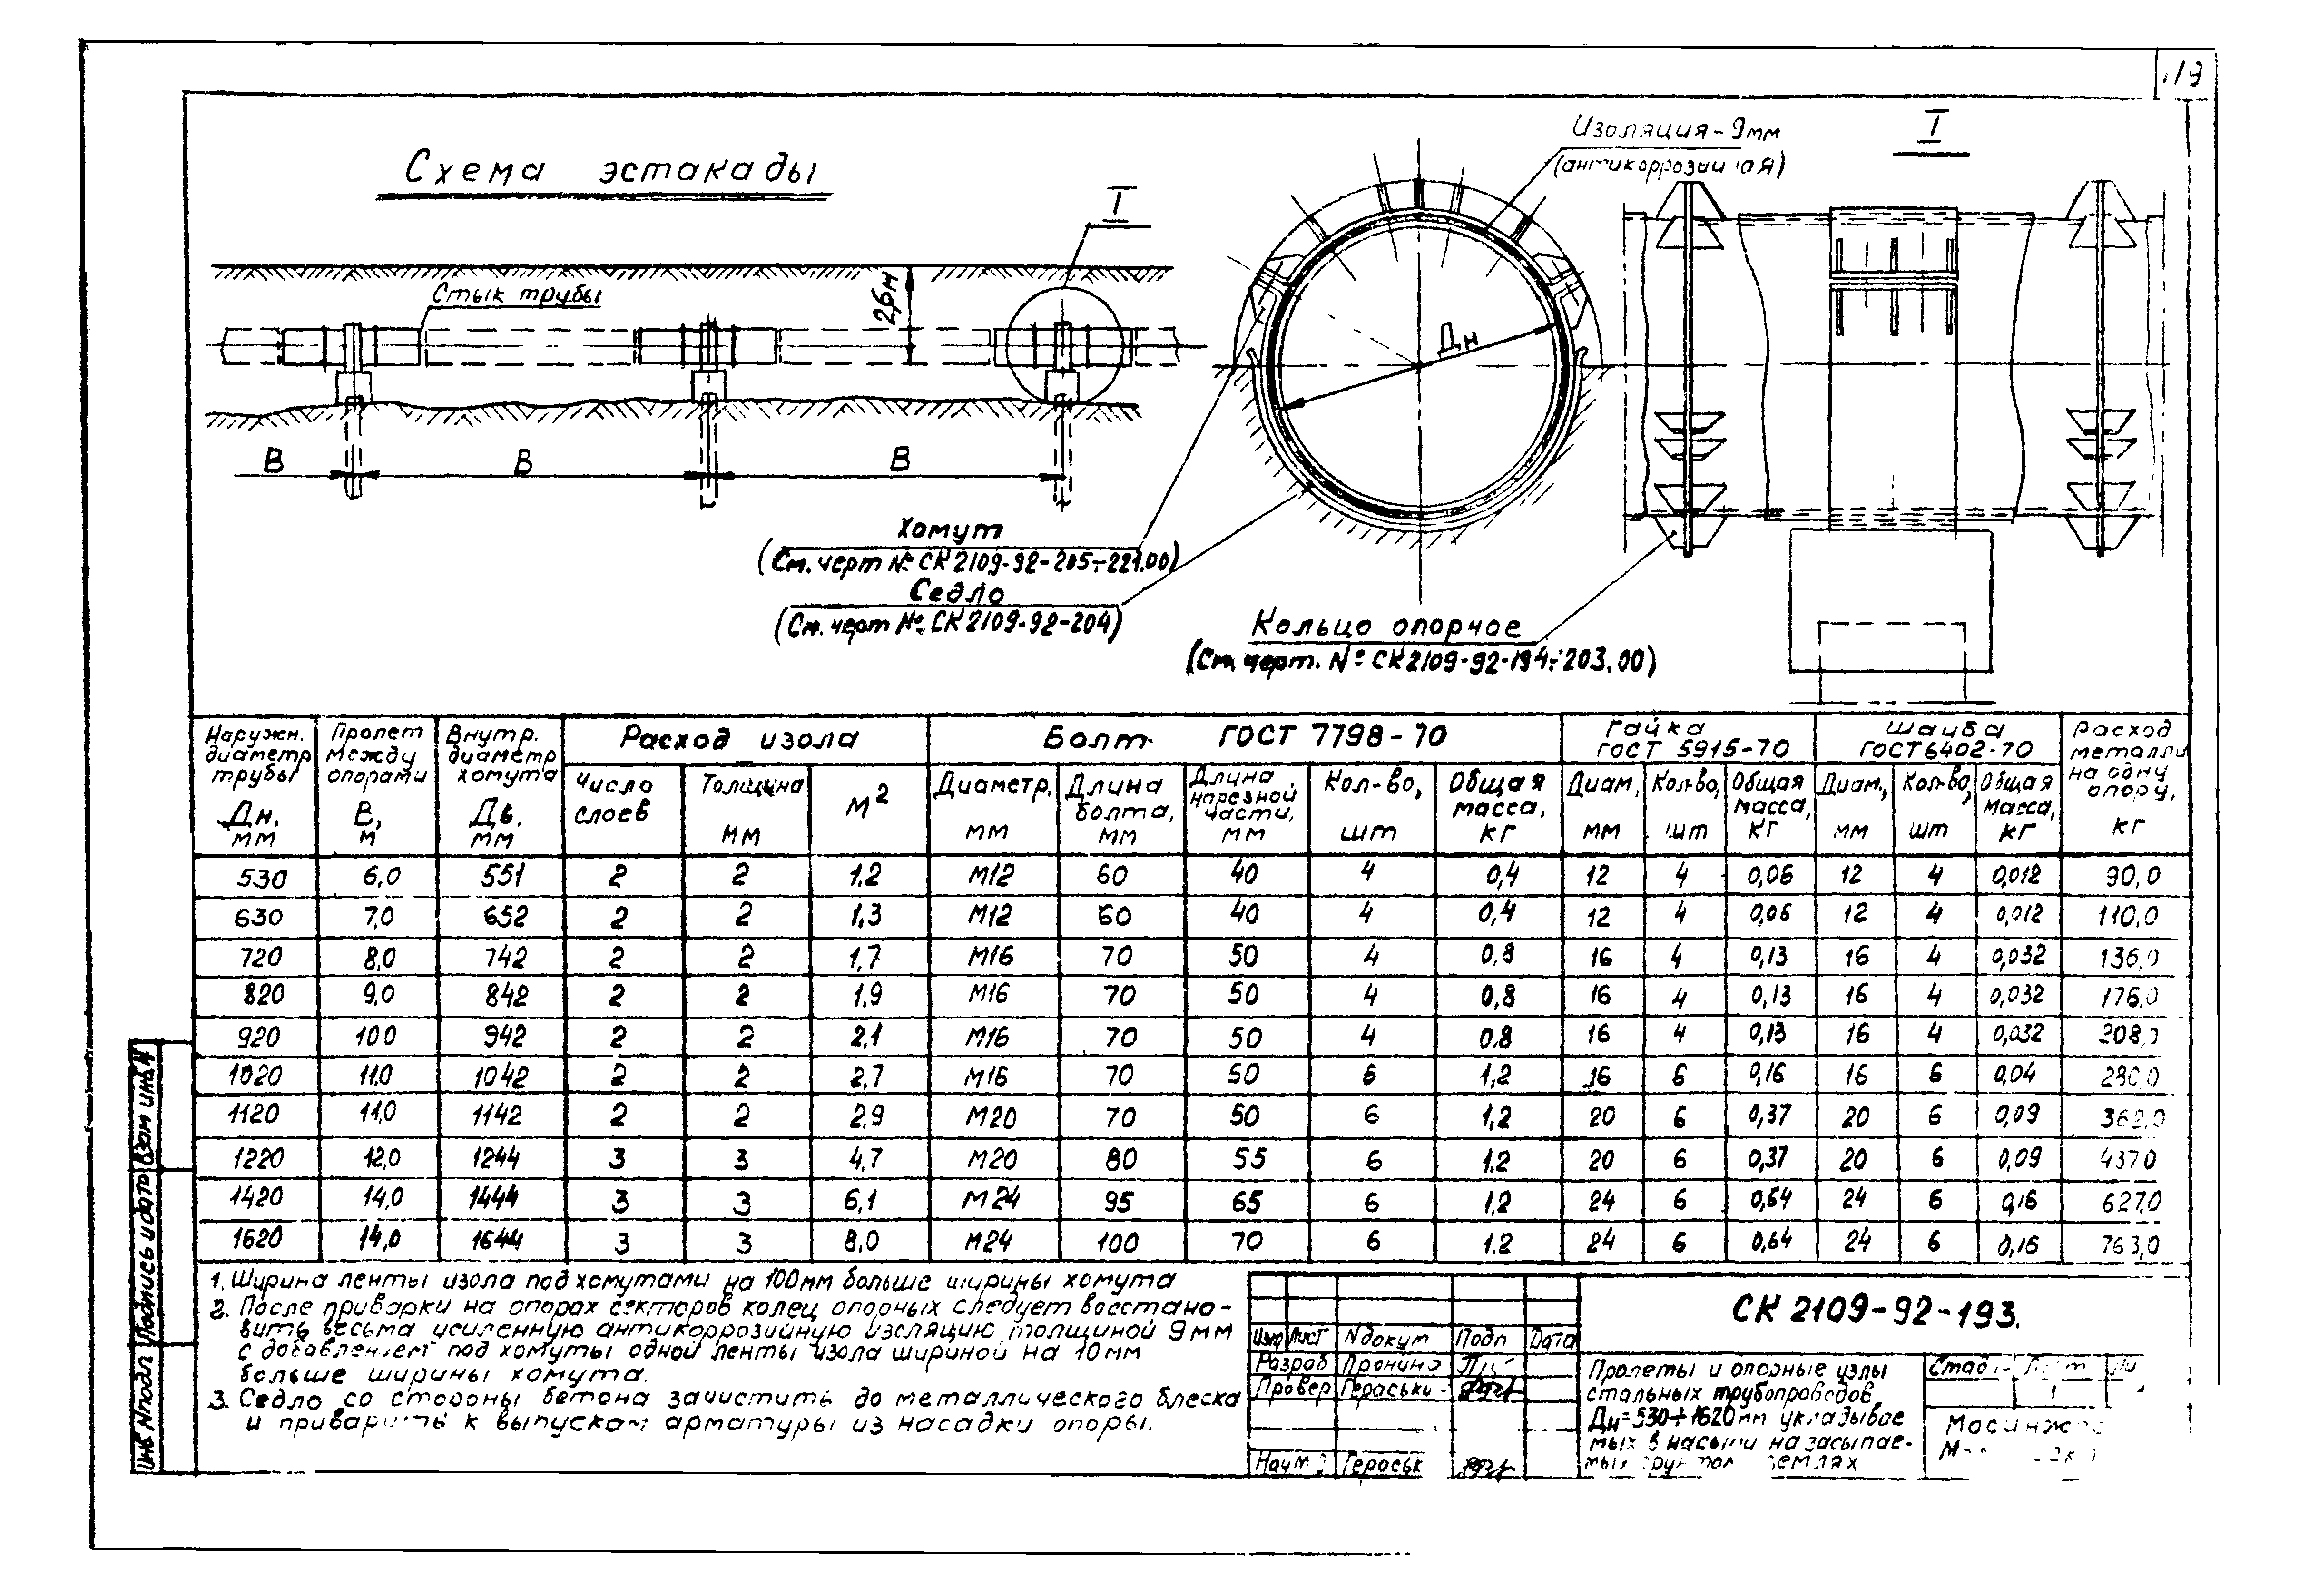 119
Схема эстакады
I
Стык трубы
2,6м
В
В
В
Изоляция-9мм
I
Дн
Хомут
(См. черт № СК 2109-92-205÷221.00)
Седло
(См. черт №. СК 2109-92-204)
Кольцо опорное
(См. черт. № СК 2109-92-194÷203.00)
Наружн. диаметр трубы Дн, мм
Пролет между опорами В, м
Внутр. диаметр хомута Дв. мм
Расход изола
Болт ГОСТ 7798-70
Гайка ГОСТ 5915-70
Шайба ГОСТ 6402-70
Расход металла на одну опору, кг
Число слоев
Толщина мм
м2
Диаметр, мм
Длина болта, мм
Длина нарезной части, мм
Кол-во, шт
Общая масса, кг
Диам, мм
Кол-во, шт
Общая масса, кг
Диам., мм
Кол-во, шт
Общая масса, кг
530 6,0 551 2 2 1,2 М12 60 40 4 0,4 12 4 0,06 12 4 0,012 90,0
630 7,0 652 2 2 1,3 М12 60 40 4 0,4 12 4 0,06 12 4 0,012 110,0
720 8,0 742 2 2 1,7 М16 70 50 4 0,8 16 4 0,13 16 4 0,032 136,0
820 9,0 842 2 2 1,9 М16 70 50 4 0,8 16 4 0,13 16 4 0,032 176,0
920 10,0 942 2 2 2,1 М16 70 50 4 0,8 16 4 0,13 16 4 0,032 208,0
1020 11,0 1042 2 2 2,7 М16 70 50 6 1,2 16 6 0,16 16 6 0,04 280,0
1120 11,0 1142 2 2 2,9 М20 70 50 6 1,2 20 6 0,37 20 6 0,09 362,0
1220 12,0 1244 3 3 4,7 М20 80 55 6 1,2 20 6 0,37 20 6 0,09 437,0
1420 14,0 1444 3 3 6,1 М24 95 65 6 1,2 24 6 0,64 24 6 0,16 627,0
1620 14,0 1644 3 3 8,0 М24 100 70 6 1,2 24 6 0,64 24 6 0,16 763,0
1. Ширина ленты изола под хомутами на 100мм больше ширины хомута
2. После приварки на опорах секторов колец опорных следует восстано-
вить весьма усиленную антикоррозийную изоляцию толщиной 9мм
с добавлением под хомуты одной ленты изола шириной на 10мм
больше ширины хомута.
3. Седло со стороны бетона зачистить до металлического блеска
и приварить к выпускам арматуры из насадки опоры.
СК 2109-92-193.
Изм Лист N докум Подп Дата
Разраб
Провер
Пролеты и опорные узлы
стальных трубопроводов
Дн=530÷1620мм укладывае
мых в насыпи на засыпае-
землях
1
Инв N подл Подпись и дата Взам инв N